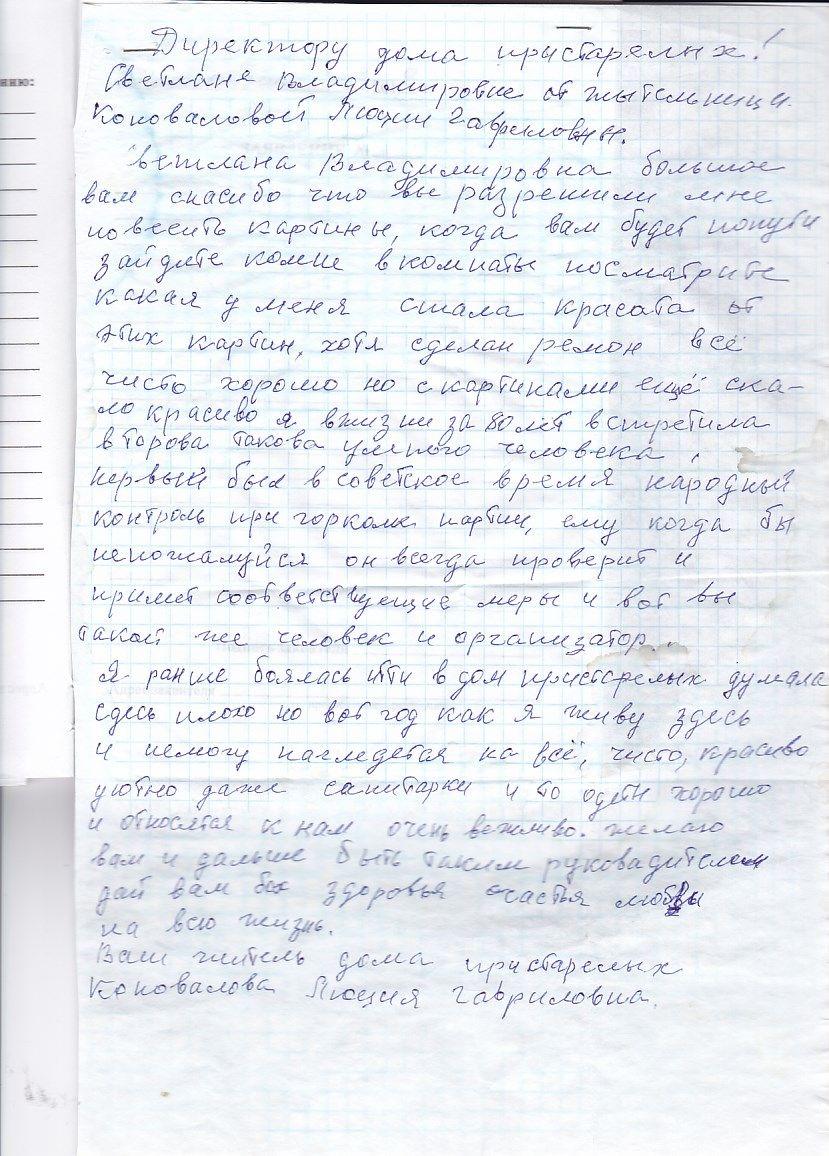 Директору дома пристарелых!
Светлане Владимировне от жытельници
Коноваловой Люции Гавриловны.
Светлана Владимировна большое
вам спасибо что вы разрешили мне
повесить картины, когда вам будет попути
зайдите комне в комнаты посматрите
какая у меня стала красата от
этих картин, хотя сделан ремон всё
чисто хорошо но скартинами ещё ска-
ло красиво я вжизни за 80 лет встретила
второва такова умного человека,
первый был в советское время народный
контроль при горкоме партии, ему когда бы
непожалуйся он всегда проверит и
примет соответствующие меры и вот вы
такой же человек и организатор.
Я раньше боялась итти в дом пристарелых думала
сдесь плохо но вот год как я живу здесь
и немогу нагледется на всё, чисто, красиво
уютно даже санитарки и то одеты хорошо
и относятся к нам очень вежливо. желаю
вам и дальше быть таким руковадителем
дай вам бог здоровья счастья любвы
на всю жизнь.
Ваш житель дома пристарелых
Коновалова Люция Гавриловна.